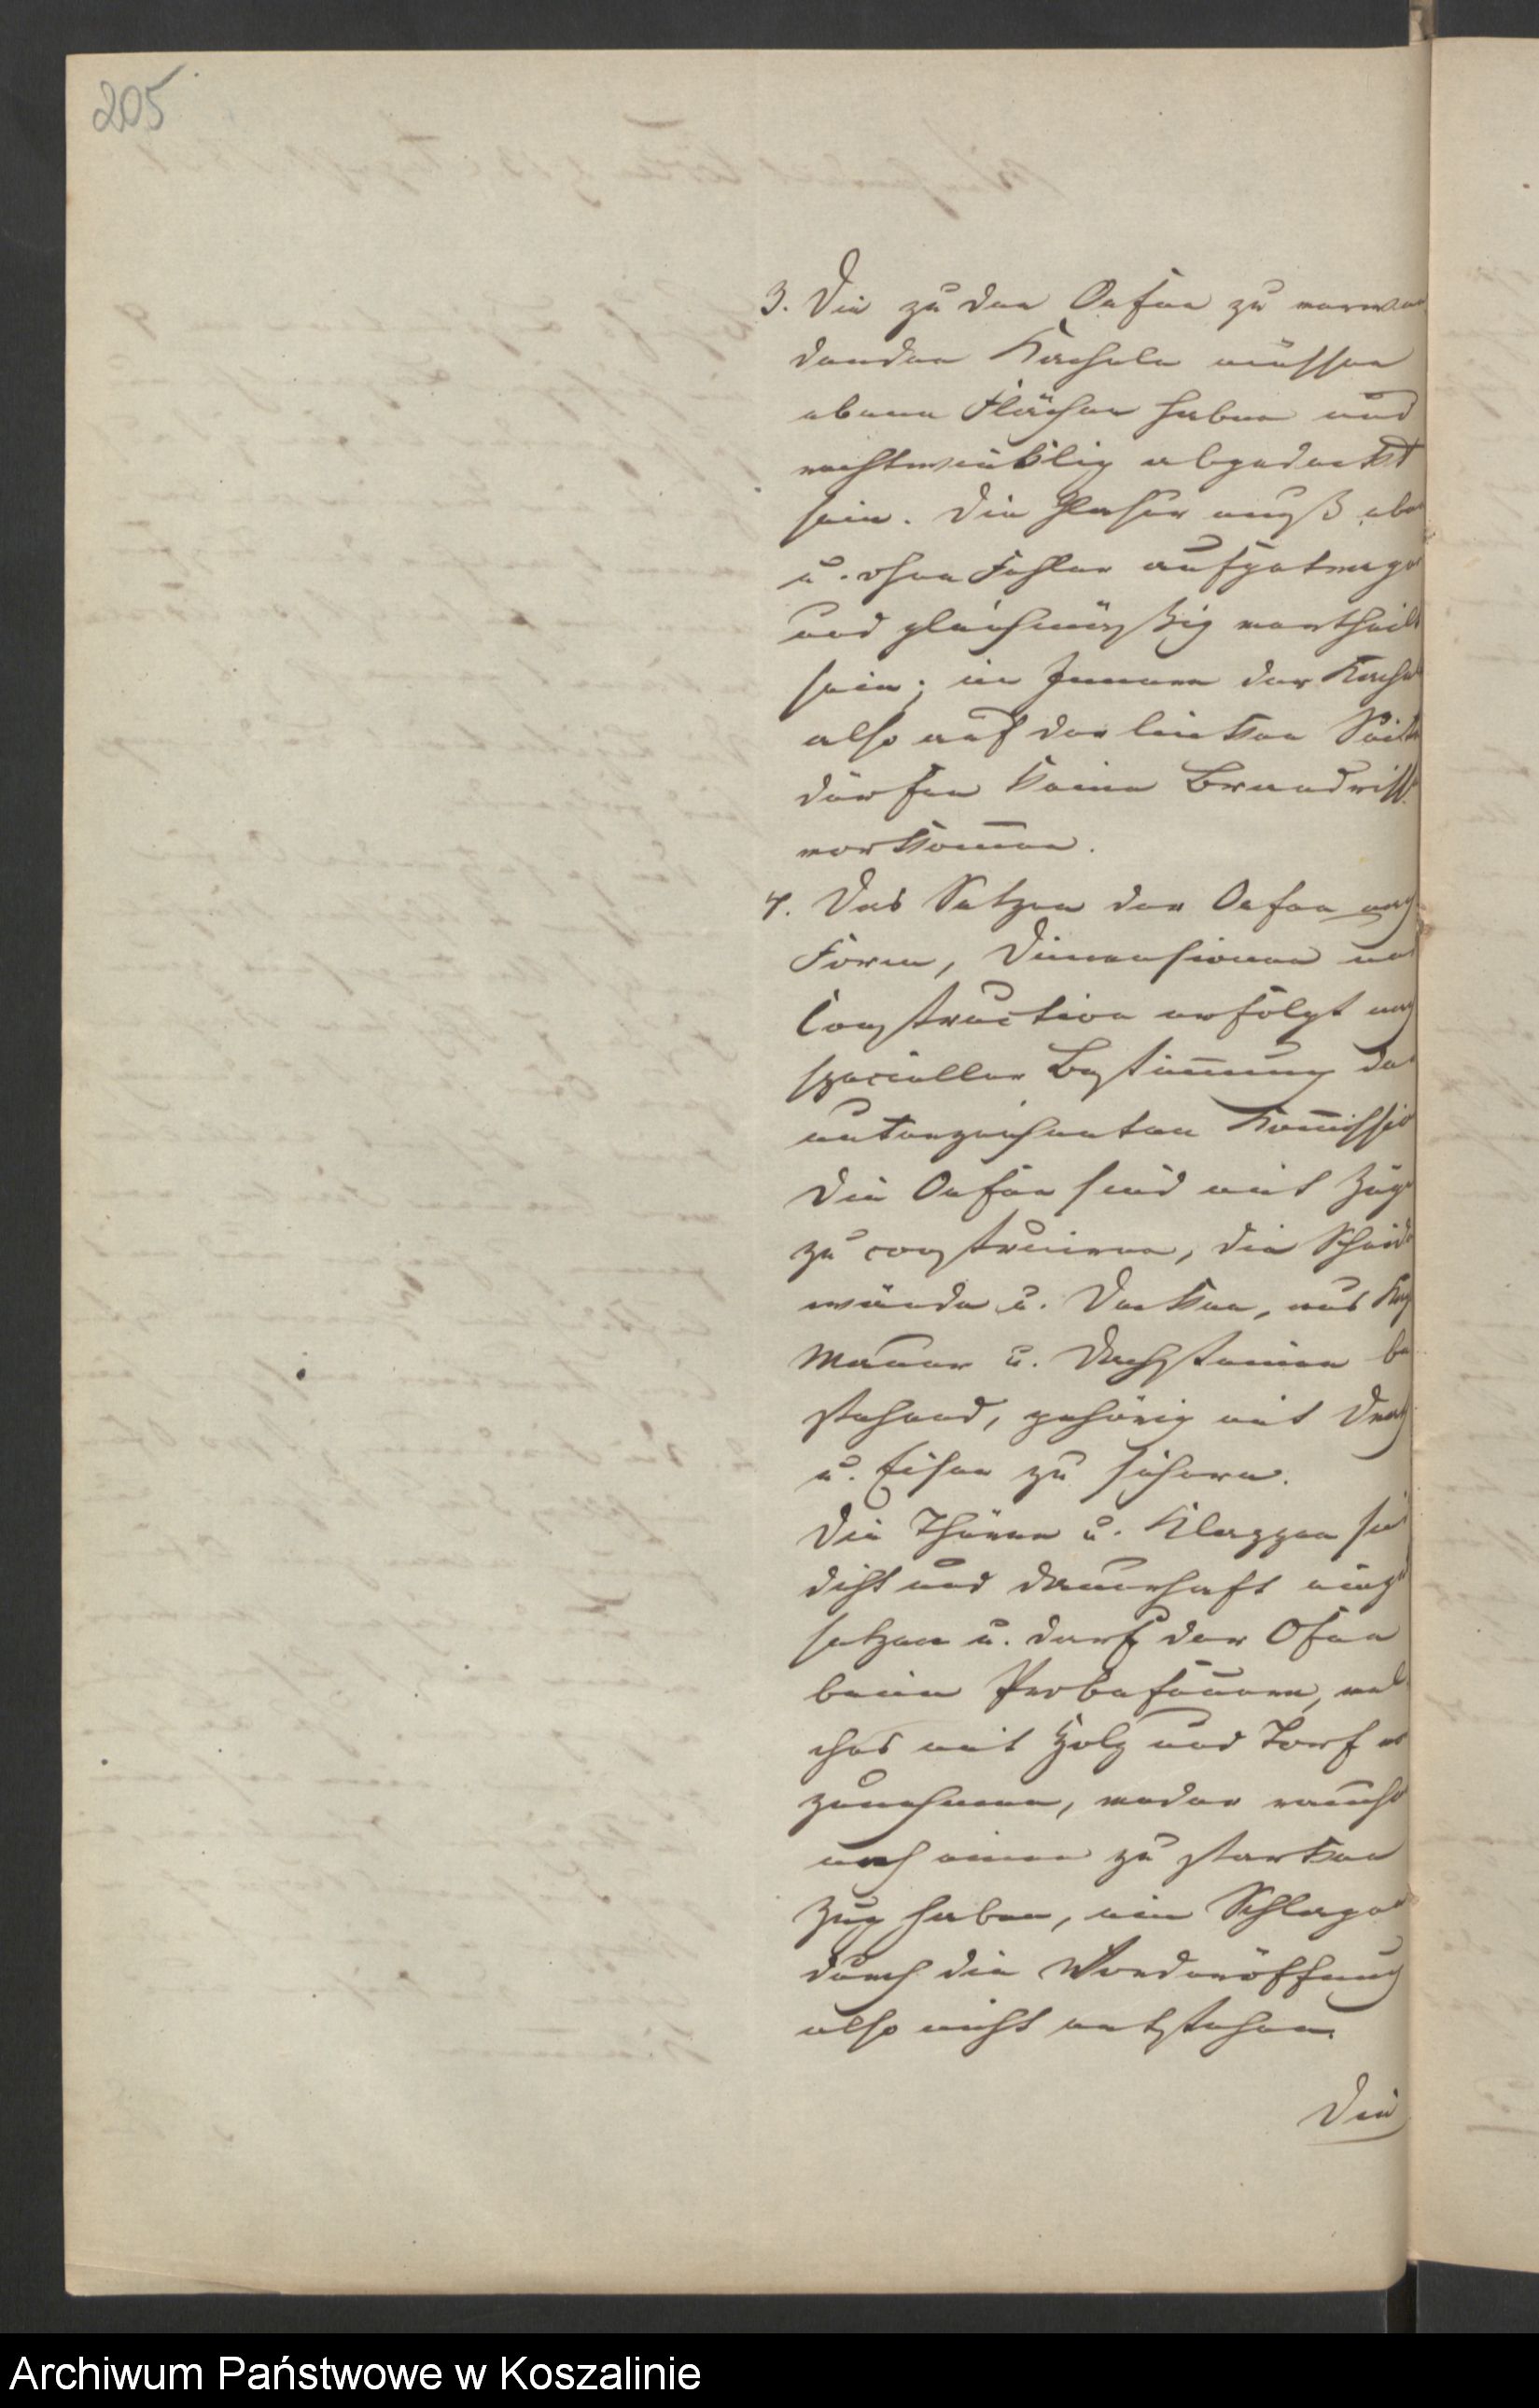 205
3. Die zu den Oefen zu verwen
denden Kacheln müssen
ebene Flächen haben und
rechtwinklig abgedeckt
sein. Die Glasur muß eben
u. ohne Fehler aufgetragen
und gleichmäßig vertheilt
sein; im Innern der Kachel
also auf der linken Seite
dürfen keine Brandrisse
vorkom̅en.
4. Das Setzen der Oefen nach
Form, Dimensionen und
Construction erfolgt nach
specieller Bestim̅ung der
unterzeichneten Kom̅ission
Die Oefen sind mit Zügen
zu construiren, die Scheide
wände u. Decken, aus
Mauer u. Dachsteinen be
stehend, gehörig mit Drath
u. Eisen zu sichern.
Die Thüren u. Klappen sind
dicht und dauerhaft einzu
setzen u. darf der Ofen
beim Probefeuern, wel
ches mit Holz und Torf vor
zunehmen, weder rauchen
noch einen zu starken
Zug haben, ein Schlagen
durch die Vorderöffnung
also nicht entstehen.
Die
Archiwum Państwowe w Koszalinie